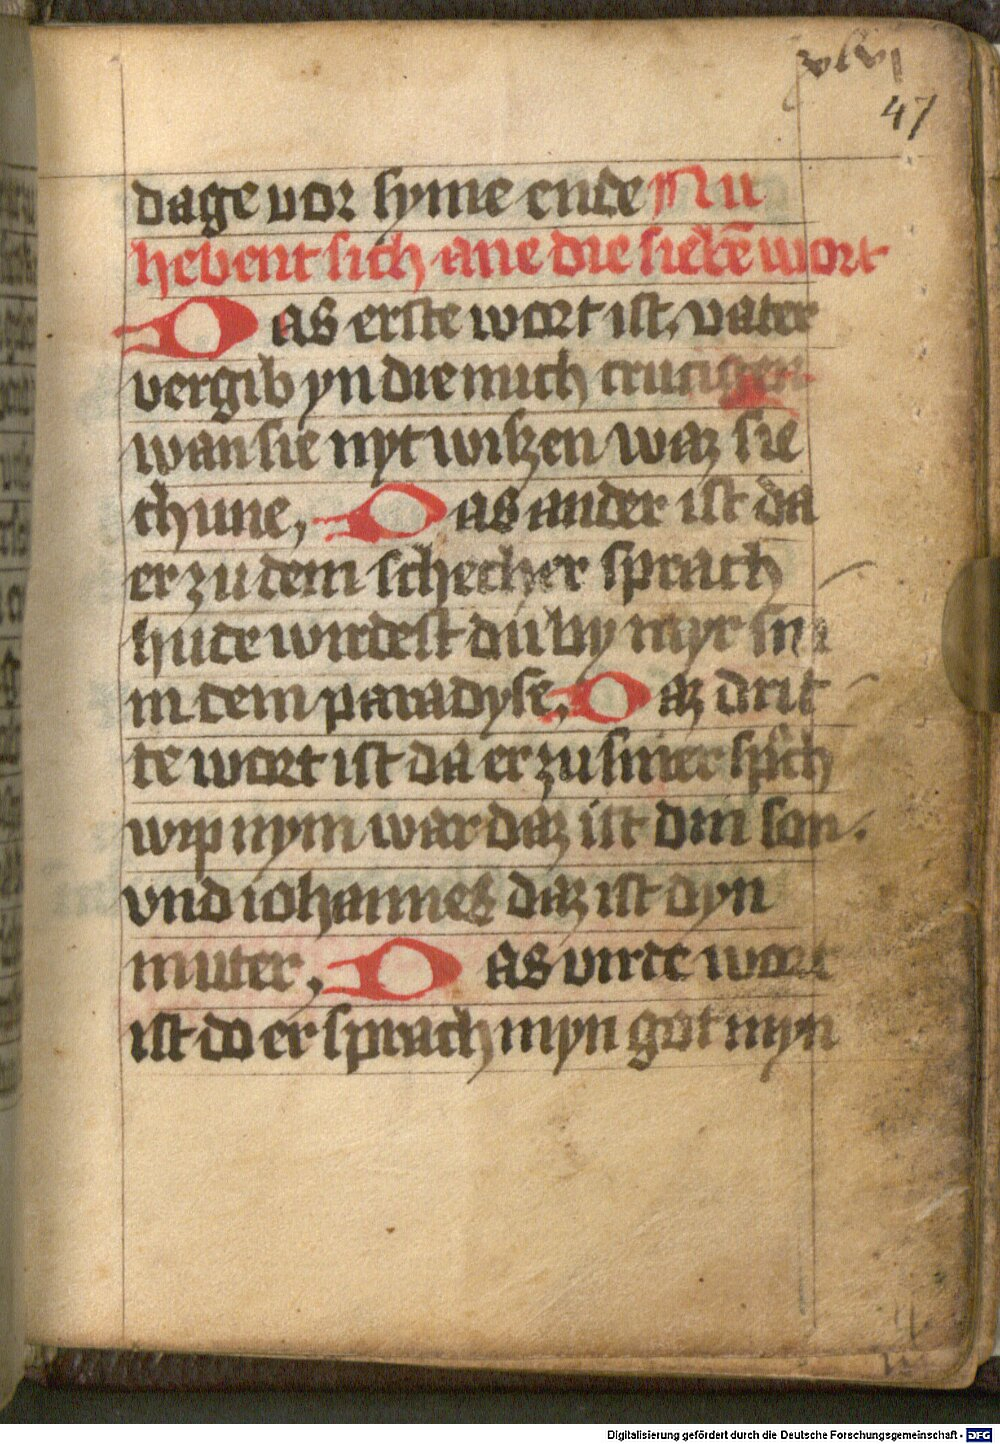 xlvj
47
dage vor hyme ende Nu
hebent sich ane die siebē wort
Das erste wort ist, vater
vergib yn die mich crucigen
wan sie nyt wißen waz sie
thune, Das ander ist da
er zu dem schecher sprach
hute wirdest du by myr sin
in dem paradyse, Daz drit
te wort ist da er zu siner sprach
wip nym war daz ist din son.
vnd iohannes daz ist dyn
muter, Das virde wort
ist do er sprach myn got myn
Digitalisierung gefördert durch die Deutsche Forschungsgemeinschaft - DFG